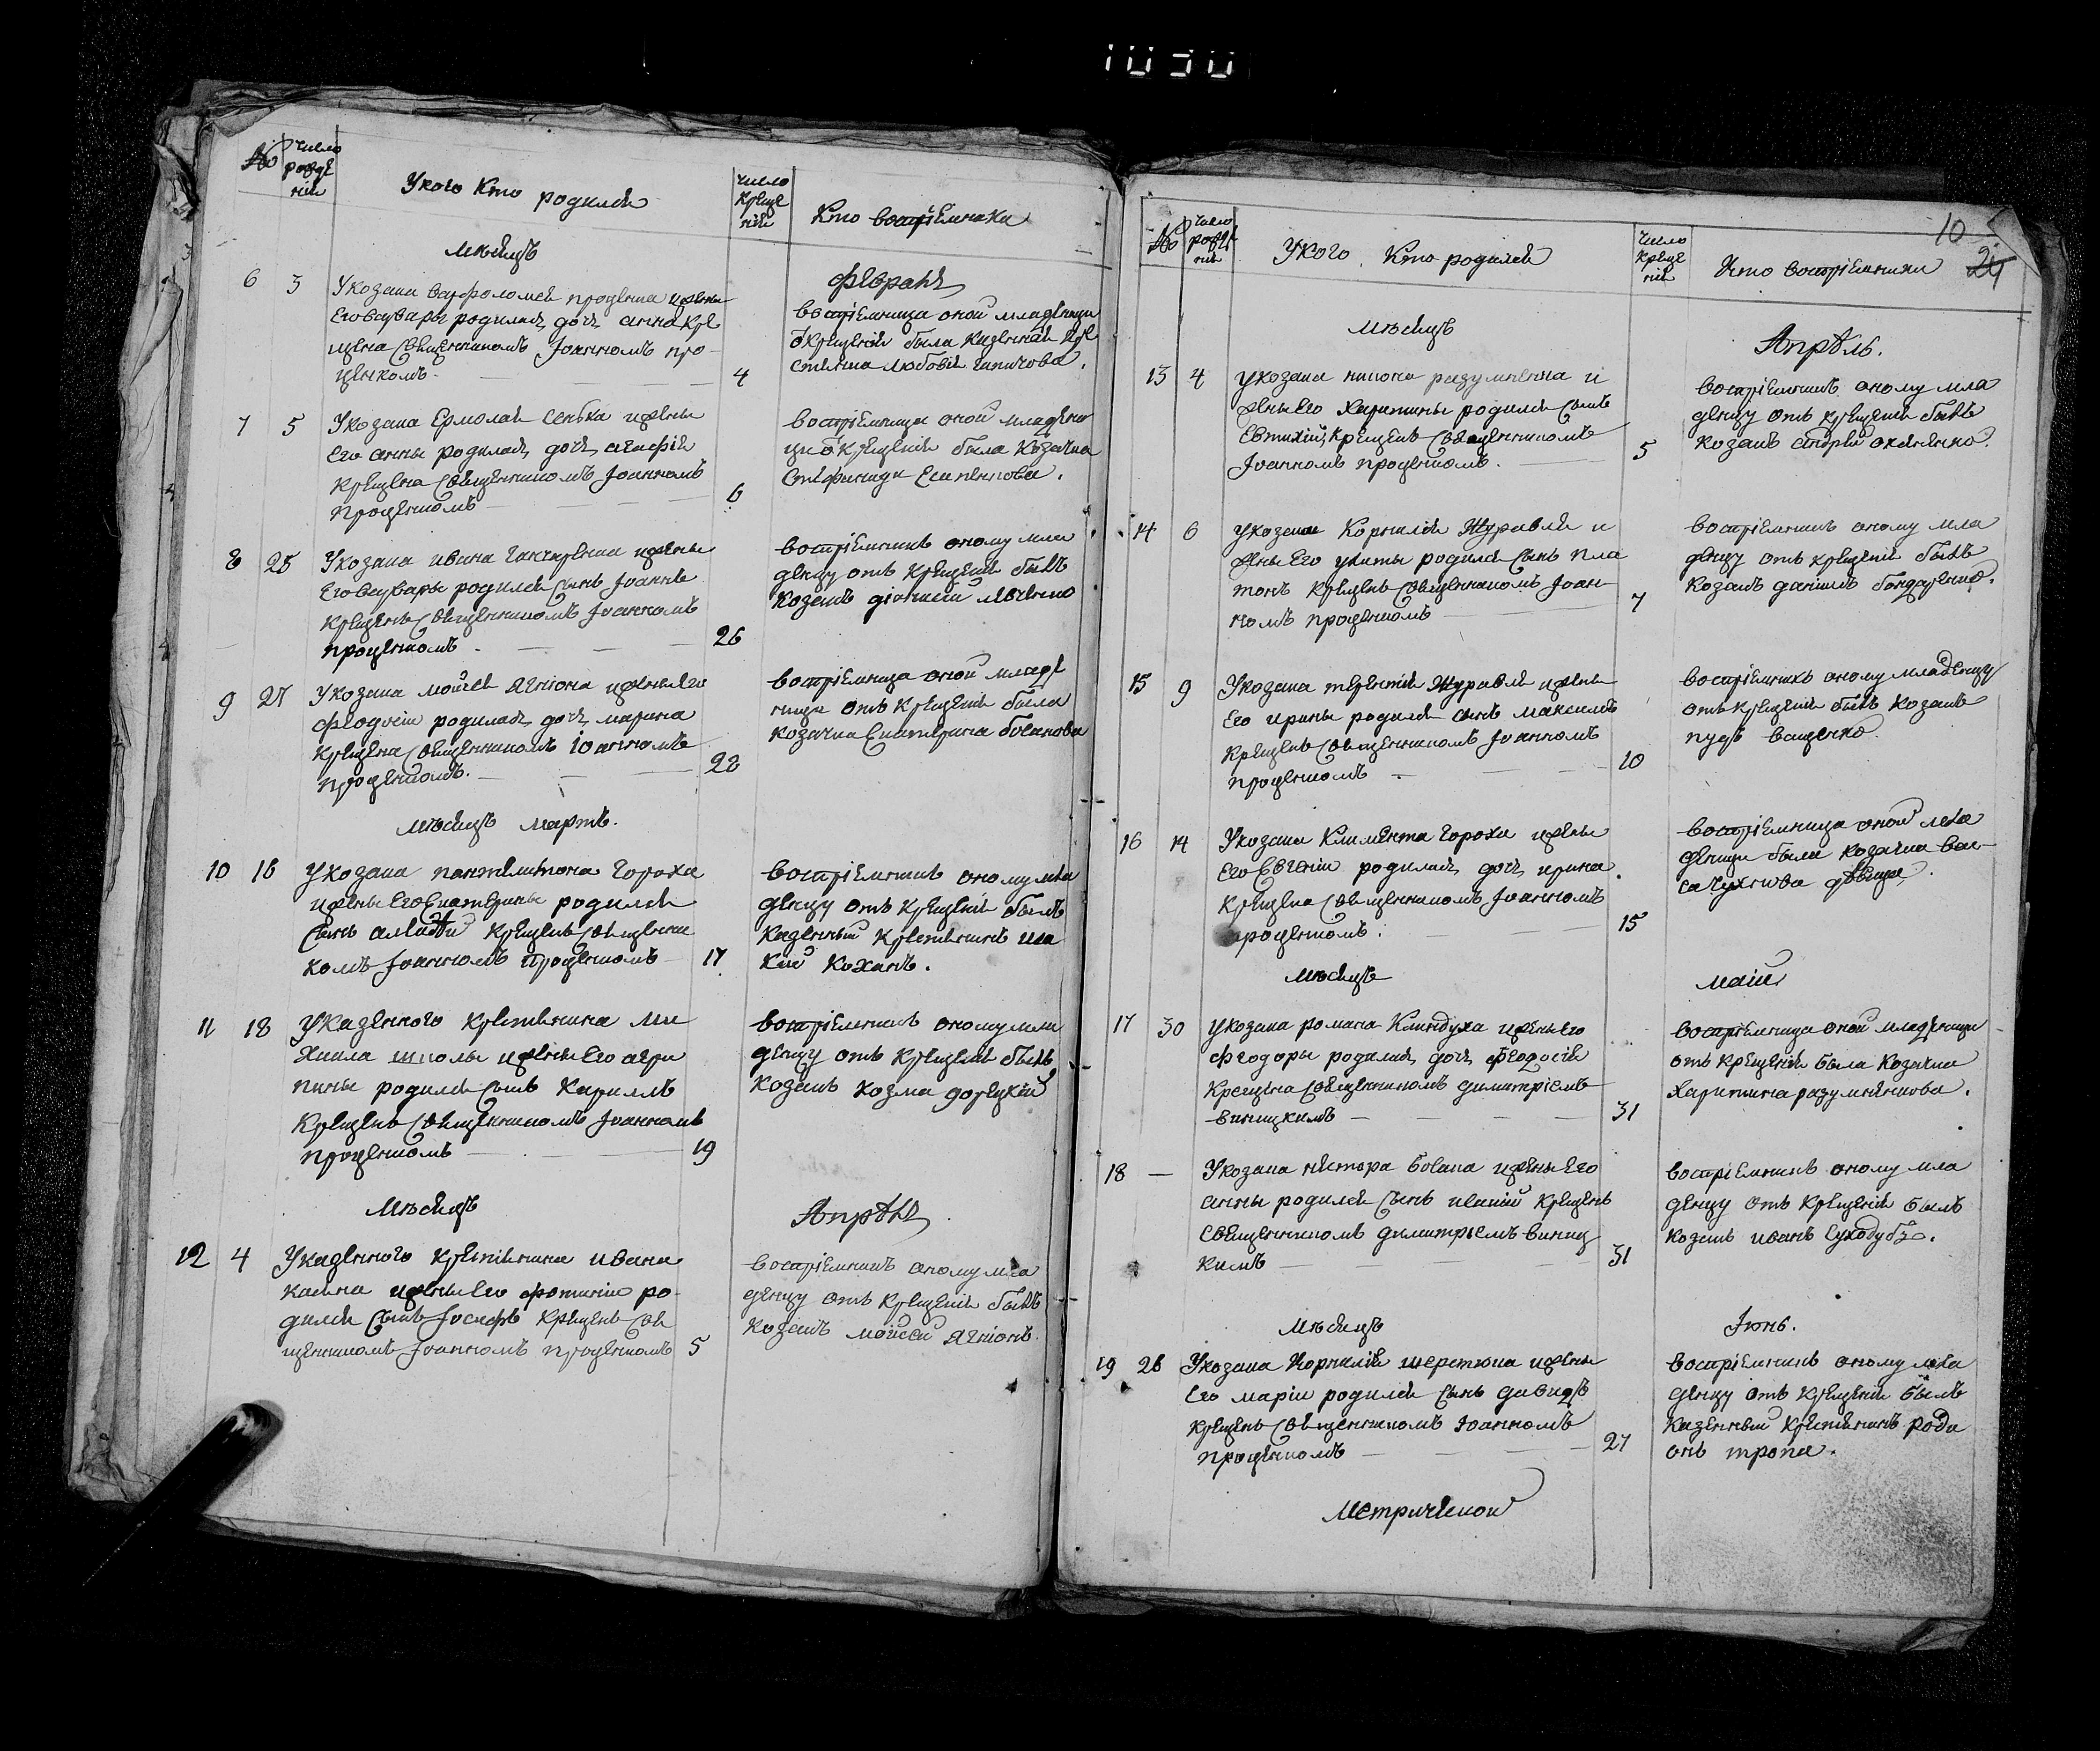 1050
№
число рожде нїя
У кого кто родился
число креще нїя
Кто воспрїемники
Мѣсяцъ
Февраль
6 3 У козака Варфоломея Проценка и жены
его Варвары родилась дочь Анна кре
щена священникомъ Іоанномъ Про-
ценкомъ 4
воспрїемница оной младеници
ѿ крещенїя была казенная кре
стянка Любовїя
7 5 У козака Ермолая Сенька и жены
его Анны родилась дочь Агафїя
крещена священникомъ Іоанномъ
Проценкомъ 6
воспрїемница оной младени
ци ѿ крещенїя была козачка
Стефанида Есипенкова.
8 25 У козака Ивана Гончаренка и жены
его Варвары родился сынъ Іоаннъ
крещенъ священникомъ Іоанномъ
Проценкомъ 26
воспрїемникъ оному мла
денцу отъ крещенїя былъ
козакъ Дїонисїй
9 27 У козака Мойсея Ягнюка и жены его
Феодосїи родилась дочь Марина
крещена священникомъ Іоанномъ
Проценкомъ. 28
воспрїемница оной младе
ници отъ крещенїя была
козачка Екатерина Боганова
Мѣсяцъ Мартъ.
10 16 У козака Пантелимона Гороха
и жены его Екатерины родился
сынъ Алексѣй крещенъ священни
комъ Іоанномъ Проценкомъ 17
воспрїемникъ оному мла
денцу отъ крещенїя былъ
казенный крестянинъ Иса
кїй Коханъ.
11 18 У казенного крестянина Ми
хаила Школы и жены его Агри
пины родился сынъ Кириллъ
крещенъ священникомъ Іоанномъ
Проценкомъ 19
воспрїемникъ оному мла
денцу отъ крещенїя былъ
козакъ Козма Дорецкїй
Мѣсяцъ
Апрѣль
12 4 У казенного крестянина Ивана
Касяна и жены его Фотинїи ро-
дился сынъ Іосифъ крещенъ свя
щенникомъ Іоанномъ Проценкомъ 5
воспрїемникъ оному мла
денцу отъ крещенїя былъ
козакъ Мойсей Ягнюкъ.
10
24
№
число рожде нїя
У кого кто родился
число креще нїя
Кто воспрїемники
Мѣсяцъ
Апрѣль.
13 4 У козака Никона Разумненка и
жены его Харитины родился сынъ
Евтихїй, крещенъ священникомъ
Іоанномъ Проценкомъ. 5
воспрїемникъ оному мла
денцу отъ крещенїя былъ
козакъ Андрей
14 6 У козака Корнилїя Журавля и
жены его Улиты родился сынъ Пла
тонъ крещенъ священникомъ Іоан-
номъ Проценкомъ 7
воспрїемникъ оному мла
денцу отъ крещенїя былъ
козакъ Данїилъ Бондаренко.
15 9 У козака Терентїя Журавля и жены
его Ирины родился сынъ Максимъ
крещенъ священникомъ Іоанномъ
Проценкомъ 10
воспрїемникъ оному младенцу
отъ крещенїя былъ козакъ
Пудъ Ващенко.
16 14 У козака Климента Гороха и жены
его Евгенїи родилась дочь Ирина.
крещена священникомъ Іоанномъ
Проценкомъ. 15
воспрїемница оной мла
деници была козачка Вас-
са девица.
Мѣсяцъ
Маїй
17 30 У козака Романа Клиндуха и жены его
Феодоры родилась дочь Феодосїя
крещена священникомъ Димитрїемъ
Виницкимъ 31
воспрїемница оной младеници
отъ крещенїя была козачка
Харитина Разумненкова.
18 — У козака Нестора Богана и жены его
Анны родился сынъ крещенъ
священникомъ Димитрїемъ Виниц
кимъ 31
воспрїемникъ оному мла
денцу отъ крещенїя былъ
козакъ Иванъ Суходубъ.
Мѣсяцъ
Іюнь.
19 26 У козака Корнилїя Шерстюка и жены
его Марїи родился сынъ Давидъ
крещенъ священникомъ Іоанномъ
Проценкомъ 27
воспрїемникъ оному мла
денцу отъ крещенїя былъ
казенный крестянинъ Роди
онъ Тропа.
Метрической